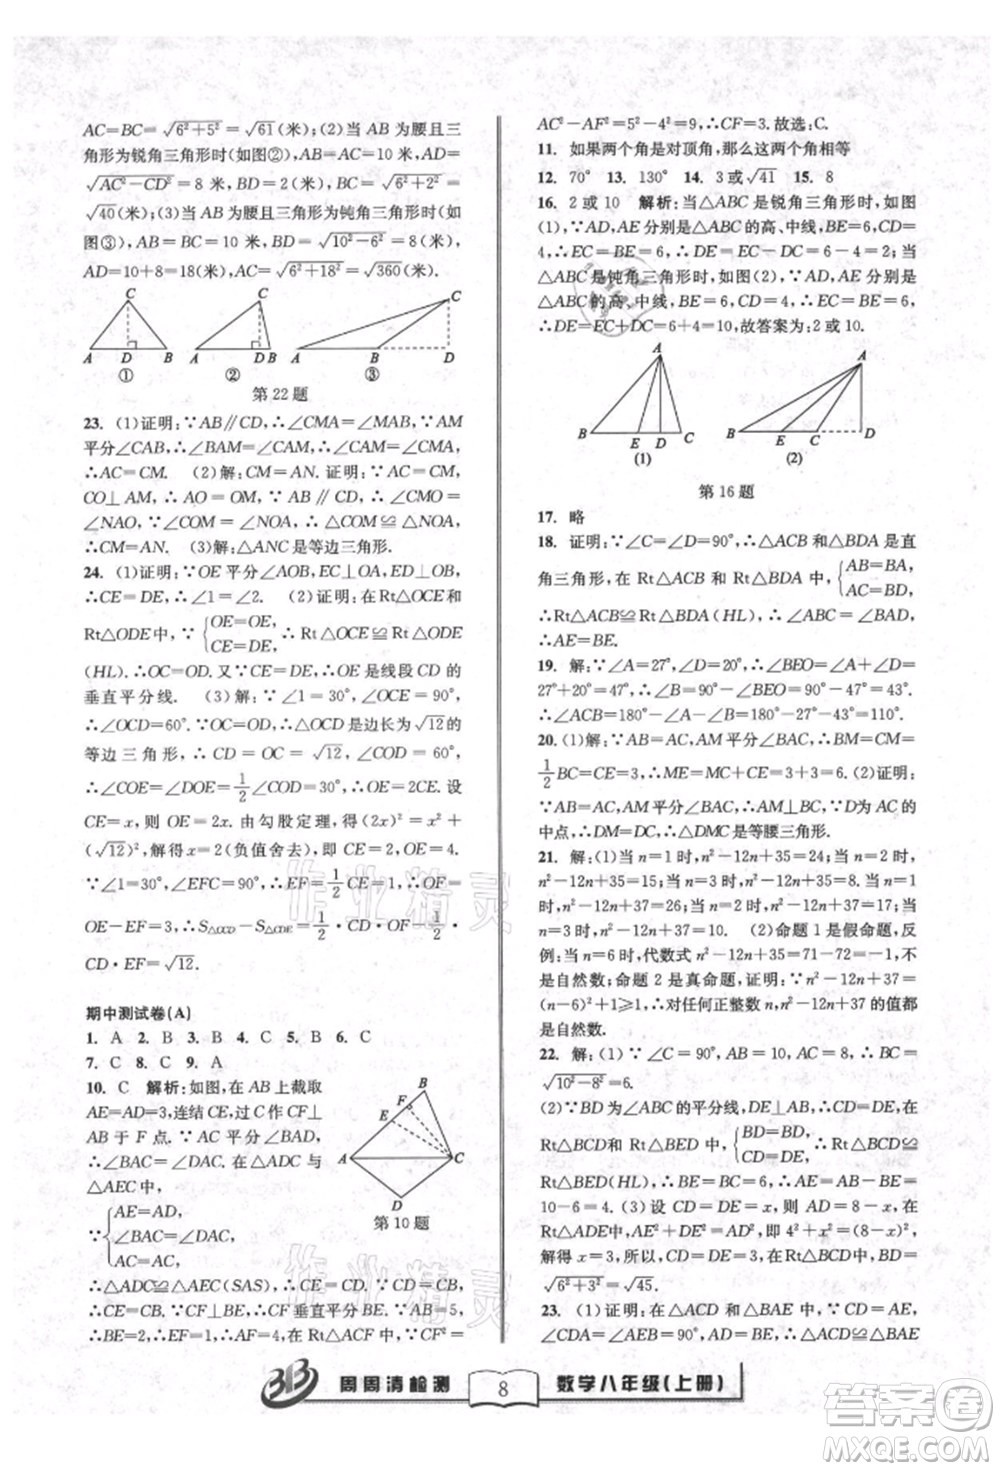 AC=BC=√(6²+5²)=√61(米);(2)当 AB 为腰且三
角形为锐角三角形时(如图②),AB=AC=10 米,AD=
√(AC²-CD²)=8 米,BD=2 米,BC=√(6²+2²)=
√40(米);(3)当 AB 为腰且三角形为钝角三角形时(如
图③),AB=BC=10 米,BD=√(10²-6²)=8 米,
AD=10+8=18(米),AC=√(18²+6²)=√360(米).
C
A D B
①
C
A D B
②
C
A B D
③
第 22 题
23. (1)证明:∵AB∥CD,∴∠CMA=∠MAB,∵AM
平分∠CAB,∴∠BAM=∠CAM,∴∠CAM=∠CMA,
∴AC=CM. (2)解:CM=AN. 证明:∵AC=CM,
CO⊥AM,∴AO=OM,∵AB∥CD,∴∠CMO=
∠NAO,∵∠COM=∠NOA,∴△COM≌△NOA,
∴CM=AN. (3)解:△ANC是等边三角形.
24. (1)证明:∵OE平分∠AOB,EC⊥OA,ED⊥OB,
∴CE=DE,∴∠1=∠2. (2)证明:在Rt△OCE和
Rt△ODE中,∵{OE=OE, CE=DE, ∴Rt△OCE≌Rt△ODE
(HL). ∴OC=OD. 又∵CE=DE,∴OE是线段CD的
垂直平分线. (3)解:∵∠1=30°,∠OCE=90°,
∴∠OCD=60°. ∵OC=OD,∴△OCD是边长为√12的
等边三角形,∴CD=OC=√12,∠COD=60°,
∴∠COE=∠DOE=1/2∠COD=30°,∴OE=2CE. 设
CE=x,则 OE=2x. 由勾股定理,得(2x)²=x²+
(√12)²,解得:x=2(负值舍去);即CE=2,∴OE=4.
∵∠1=30°,∠EFC=90°,∴EF=1/2CE=1,∴OF=
OE-EF=3,∴S△OCD-S△CDE=1/2·CD·OF-1/2·
CD·EF=√12.
期中测试卷(A)
1. A 2. B 3. B 4. C 5. B 6. C
7. C 8. C 9. A
10. C 解析:如图,在 AB 上截取
AE=AD=3,连结CE,过C作CF⊥
AB于F点.∵AC平分∠BAD,
∴∠BAC=∠DAC. 在△ADC与
△AEC中,
∵{AE=AD, ∠BAC=∠DAC, AC=AC,
B
F
E
A C
D
第 10 题
∴△ADC≌△AEC(SAS),∴CE=CD=5,∵BC=5,
∴CE=BC,∵CF⊥AB,∴CF垂直平分BE,∵AB=5,
∴BE=2,∴EF=1,∴AF=4,在Rt△ACF中,∵CF²=
AC²-AF²=5²-4²=9,∴CF=3. 故选:C.
11. 如果两个角是对顶角,那么这两个角相等
12. 70° 13. 130° 14. 3或√41 15. 8
16. 2或10 解析:当△ABC是锐角三角形时,如图
(1),∵AD,AE分别是△ABC的高、中线,BE=6,
∴EC=BE=6,∴DE=EC-DC=6-4=2;当
△ABC是钝角三角形时,如图(2),∵AD,AE分别是
△ABC的高、中线,BE=6,CD=4,∴EC=BE=6,
∴DE=EC+CD=6+4=10;故答案为:2或10.
A
B E D C
(1)
A
B E C D
(2)
第 16 题
17. 略
18. 证明:∵∠C=∠D=90°,∴△ACB和△BDA是直
角三角形,在Rt△ACB和Rt△BDA中,{AB=BA, AC=BD,
∴Rt△ACB≌Rt△BDA(HL),∴∠ABC=∠BAD,
∴AE=BE.
19. 解:∵∠A=27°,∠D=20°,∴∠BEO=∠A+∠D=
27°+20°=47°,∴∠B=90°-∠BEO=90°-47°=43°.
∴∠ACB=180°-∠A-∠B=180°-27°-43°=110°.
20. (1)解:∵AB=AC,AM平分∠BAC,∴BM=CM=
1/2BC=CE=3,∴ME=MC+CE=3+3=6. (2)证明:
∵AB=AC,AM平分∠BAC,∴AM⊥BC,∵D为AC
中点,∴DM=DC,∴△DMC是等腰三角形.
21. 解:(1)当n=1时,n²-12n+35=24;当n=2时,
n²-12n+35=15;当n=3时,n²-12n+36=9;当n=
4时,n²-12n+36=4. (2)命题1是假命题,反
例:当n=6时,代数式n²-12n+35=36-72+35=-1,不
是自然数;命题2是真命题,证明:∵n²-12n+36=
(n-6)²+1≥1,∴对于任何正整数,n²-12n+37的值都
是自然数.
22. 解:(1)∵∠C=90°,AB=10,BC=8,∴AC=
√(10²-8²)=6.
(2)∵BD为∠ABC的平分线,DE⊥AB,∴CD=DE,在
Rt△BCD和Rt△BED中,{BD=BD, CD=DE, ∴Rt△BCD≌
Rt△BED(HL),∴BE=BC=6,∴AE=AB-BE=
10-6=4. (3)设CD=DE=x,则AD=8-x,在
Rt△AED中,AE²+DE²=AD²,即4²+x²=(8-x)²,
解得x=3,∴CD=DE=3,∴BD=√(BC²+CD²)=
√(6²+3²)=√45.
23. (1)证明:在△ACD和△ABE中,∵CD=AE,
∠CDA=∠AEB=90°,DA=EB,∴△ACD≌△BAE
周周清检测
8
数学八年级(上册)
作业精灵
作业精灵
答案卷
MXQE.COM